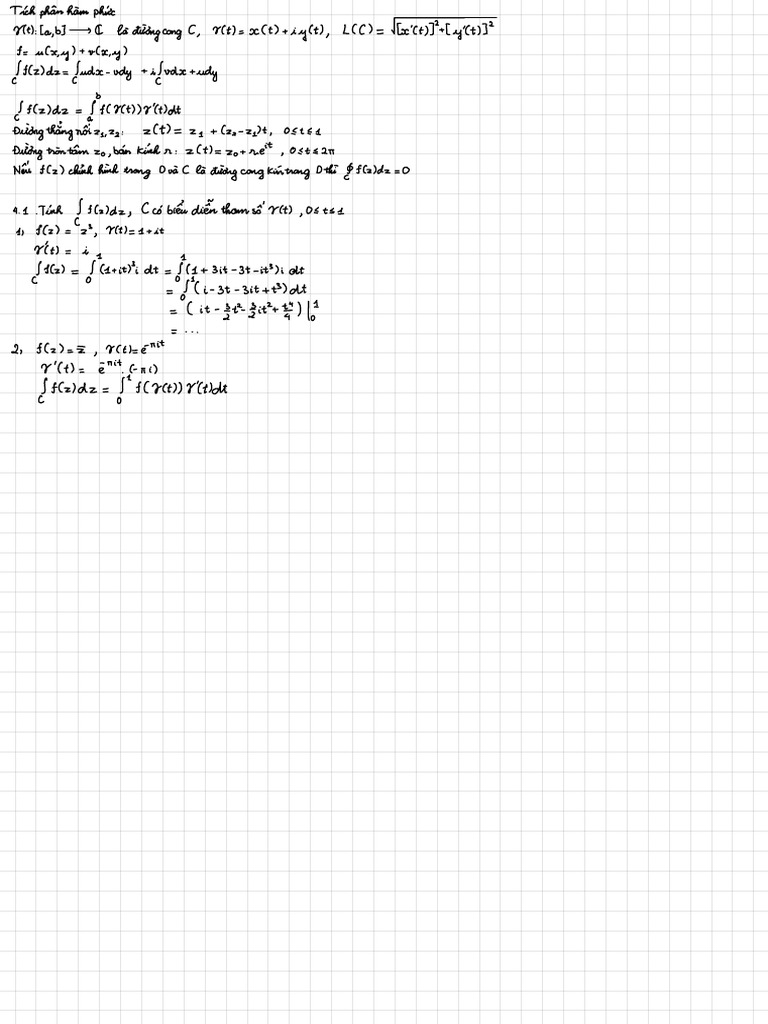 Tích phân hàm phức
γ(t): [a,b] ⟶ ℂ là đường cong C, γ(t) = x(t) + iy(t), L(C) = √([x'(t)]²+[y'(t)]²)
f= u(x,y) + v(x,y)
∫_C f(z)dz = ∫_C udx - vdy + i∫_C vdx + udy
∫_C f(z)dz = ∫_a^b f(γ(t))γ'(t)dt
Đường thẳng nối z₁, z₂: z(t) = z₁ + (z₂-z₁)t, 0≤t≤1
Đường tròn tâm z₀, bán kính r: z(t) = z₀ + re^{it}, 0≤t≤2π
Nếu f(z) chỉnh hình trong D và C là đường cong kín trong D thì ∮_C f(z)dz = 0
4.1. Tính ∫_C f(z)dz, C có biểu diễn tham số γ(t), 0≤t≤1
1, f(z) = z³, γ(t) = 1+it
γ'(t) = i
∫_C f(z) = ∫_0^1 (1+it)³i dt = ∫_0^1 (1 + 3it - 3t - it³)i dt
= ∫_0^1 (i - 3t - 3it + t³)dt
= (it - 3/2 t² - 3/2 it² + t⁴/4) |_0^1
= ...
2, f(z) = z̄, γ(t) = e^{-πit}
γ'(t) = e^{-πit}.(-πi)
∫_C f(z)dz = ∫_0^1 f(γ(t))γ'(t)dt